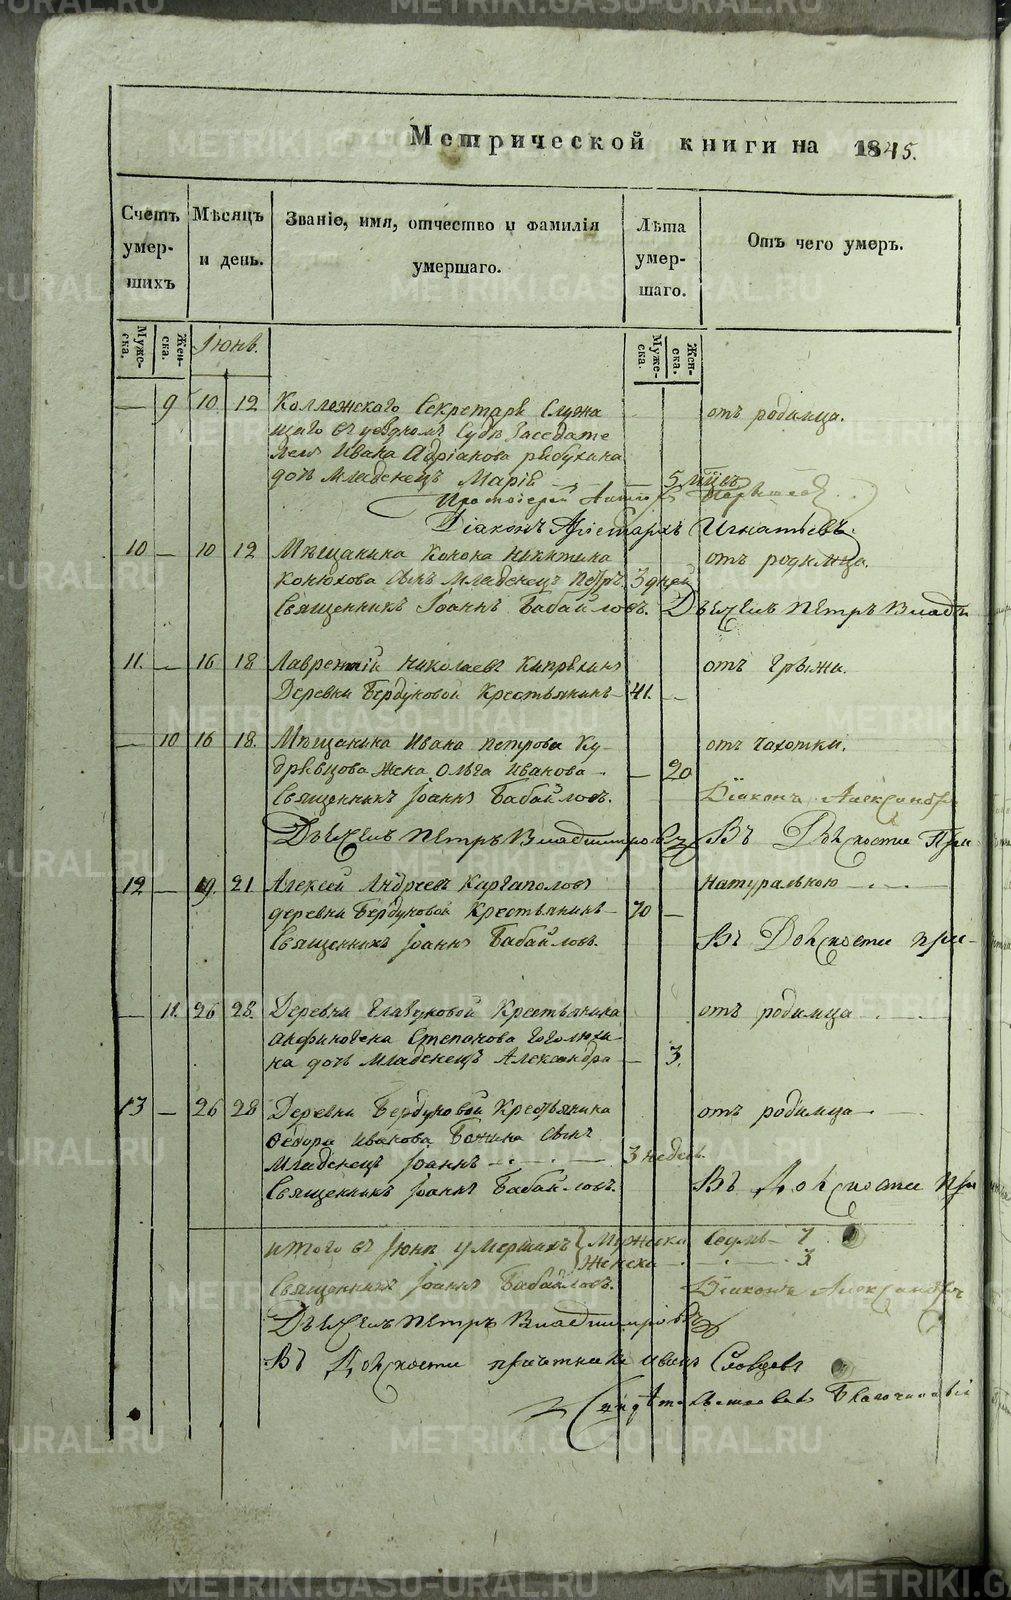 Метрической книги на 1845.
Счетъ умершихъ
Мѣсяцъ и день.
Званіе, имя, отчество и фамилія умершаго.
Лѣта умершаго.
Отъ чего умеръ.
Мужеска.
Женска.
Іюнь.
Мужеска.
Женска.
— 9 10 12 Коллежскаго Секретаря Служа отъ родимца.
щаго въ уездномъ Судѣ Заседате
лемъ Ивана Адріанова
дочь младенецъ Марія 5
Протоіерей
Діаконъ Аристархъ Игнатьевъ.
10 — 10 12 Мѣщанина Конона Никитина отъ родимца.
Конюхова сынъ младенецъ Петръ 3 дней
Священникъ Іоаннъ Бабайловъ. Дьячекъ Петръ Влад
11. — 16 18 Лаврентій Николаевъ Кипрѣинъ отъ грыжи.
Деревни Бердюковой Крестьянинъ 41. —
— 10 16 18. Мѣщанина Ивана Петрова Ку- отъ чахотки.
дрявцова жена Ольга Иванова — — 20
Священникъ Іоаннъ Бабайловъ. Діаконъ Александръ
Дьячекъ Петръ Владимировъ Въ Должности При
12 — 19. 21 Алексей Андреевъ Каргаполовъ Натуральною —
деревни Бердюковой Крестьянинъ 70 —
Священникъ Іоаннъ Бабайловъ. Въ Должности при-
— 11. 26 28. Деревни Крестьянина отъ родимца
Анфиногена Степанова
на дочь младенецъ Александра — 3.
13 — 26 28 Деревни Бердюковой Крестьянина отъ родимца —
Федора Иванова сынъ
Младенецъ Іоаннъ — 3 недель.
Священникъ Іоаннъ Бабайловъ. Въ Должности При
итого въ Іюнѣ умершихъ Мужеска Седмь — 7
Женска — 3
Священникъ Іоаннъ Бабайловъ. Діаконъ Александръ
Дьячекъ Петръ Владимировъ
Въ Должности причетника Иванъ Словцовъ
Свидѣтельствовалъ Благочинный
METRIKI.GASO-URAL.RU